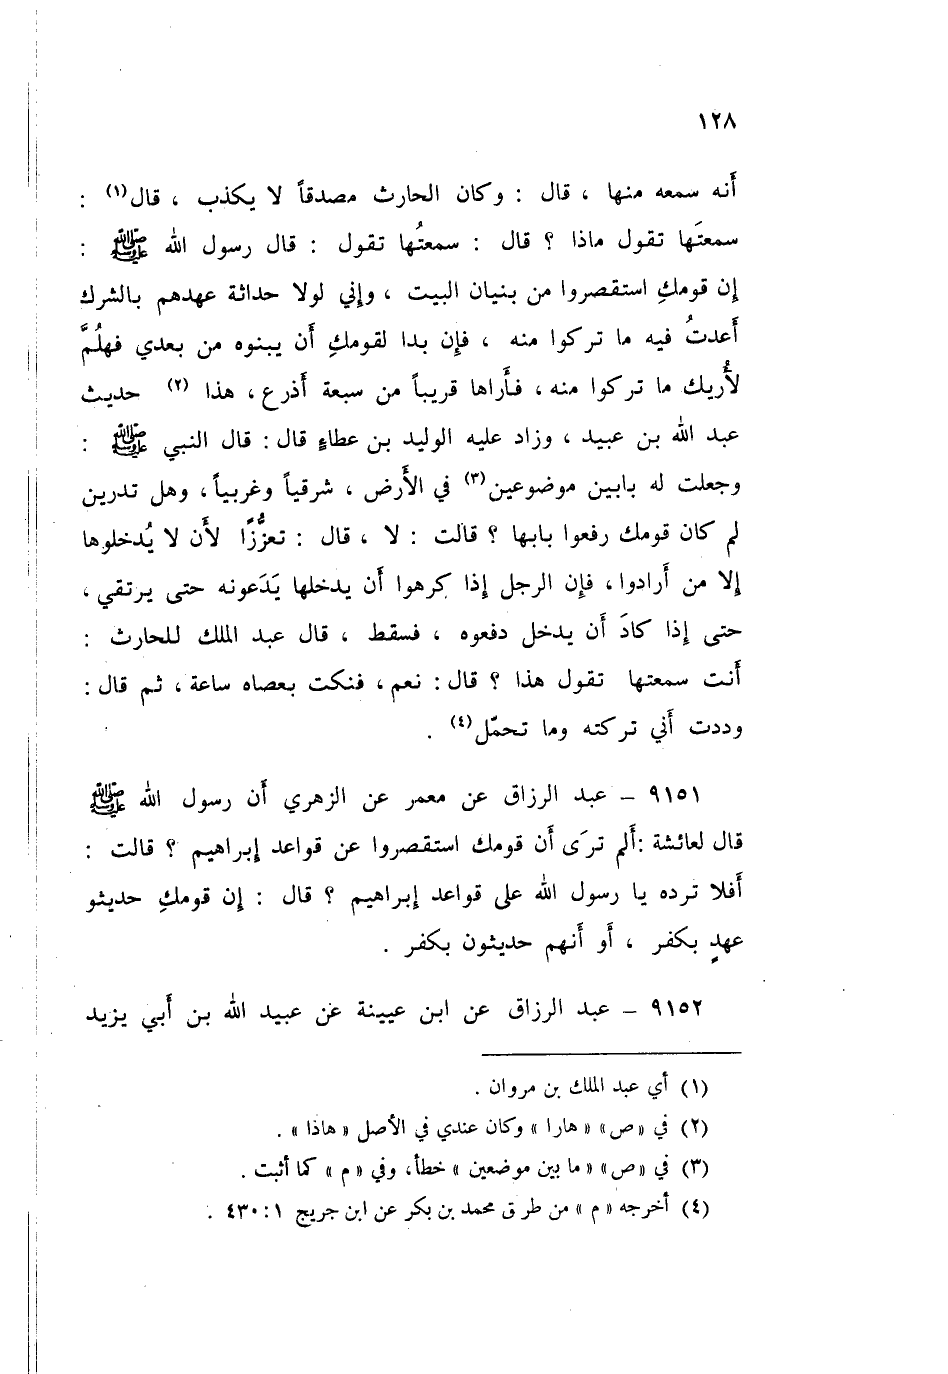 ١٢٨
أَنه سمعه منها ، قال : وكان الحارث مصدقاً لا يكذب ، قال(١) :
سمعتَها تقول ماذا ؟ قال : سمعتُها تقول : قال رسول الله ﷺ :
إن قومكِ استقصروا من بنيان البيت ، وإني لولا حداثة عهدهم بالشرك
أَعدتُ فيه ما تركوا منه ، فإن بدا لقومكِ أَن يبنوه من بعدي فهلُمَّ
لأُريك ما تركوا منه ، فأَراها قريباً من سبعة أَذرع ، هذا (٢) حديث
عبد الله بن عبيد ، وزاد عليه الوليد بن عطاءٍ قال : قال النبي ﷺ :
وجعلت له بابين موضوعين(٣) في الأَرض ، شرقياً وغربياً ، وهل تدرين
لم كان قومك رفعوا بابها ؟ قالت : لا ، قال : تعزُّزًا لأَن لا يُدخلوها
إلا من أَرادوا ، فإن الرجل إذا كرهوا أَن يدخلها يَدَعونه حتى يرتقي ،
حتى إذا كادَ أَن يدخل دفعوه ، فسقط ، قال عبد الملك للحارث :
أَنت سمعتها تقول هذا ؟ قال : نعم ، فنكت بعصاه ساعة ، ثم قال :
وددت أَني تركته وما تحمّل(٤) .
٩١٥١ – عبد الرزاق عن معمر عن الزهري أَن رسول الله ﷺ
قال لعائشة : أَلم ترَى أَن قومك استقصروا عن قواعد إبراهيم ؟ قالت :
أَفلا ترده يا رسول الله على قواعد إبراهيم ؟ قال : إن قومكِ حديثو
عهدٍ بكفر ، أَو أَنهم حديثون بكفر .
٩١٥٢ – عبد الرزاق عن ابن عيينة عن عبيد الله بن أَبي يزيد
(١) أي عبد الملك بن مروان .
(٢) في «ص» « هارا » وكان عندي في الأصل « هاذا » .
(٣) في «ص» « ما بين موضعين » خطأ، وفي « م » كما أثبت .
(٤) أخرجه « م » من طرق محمد بن بكر عن ابن جريج ١ : ٤٣٠ .